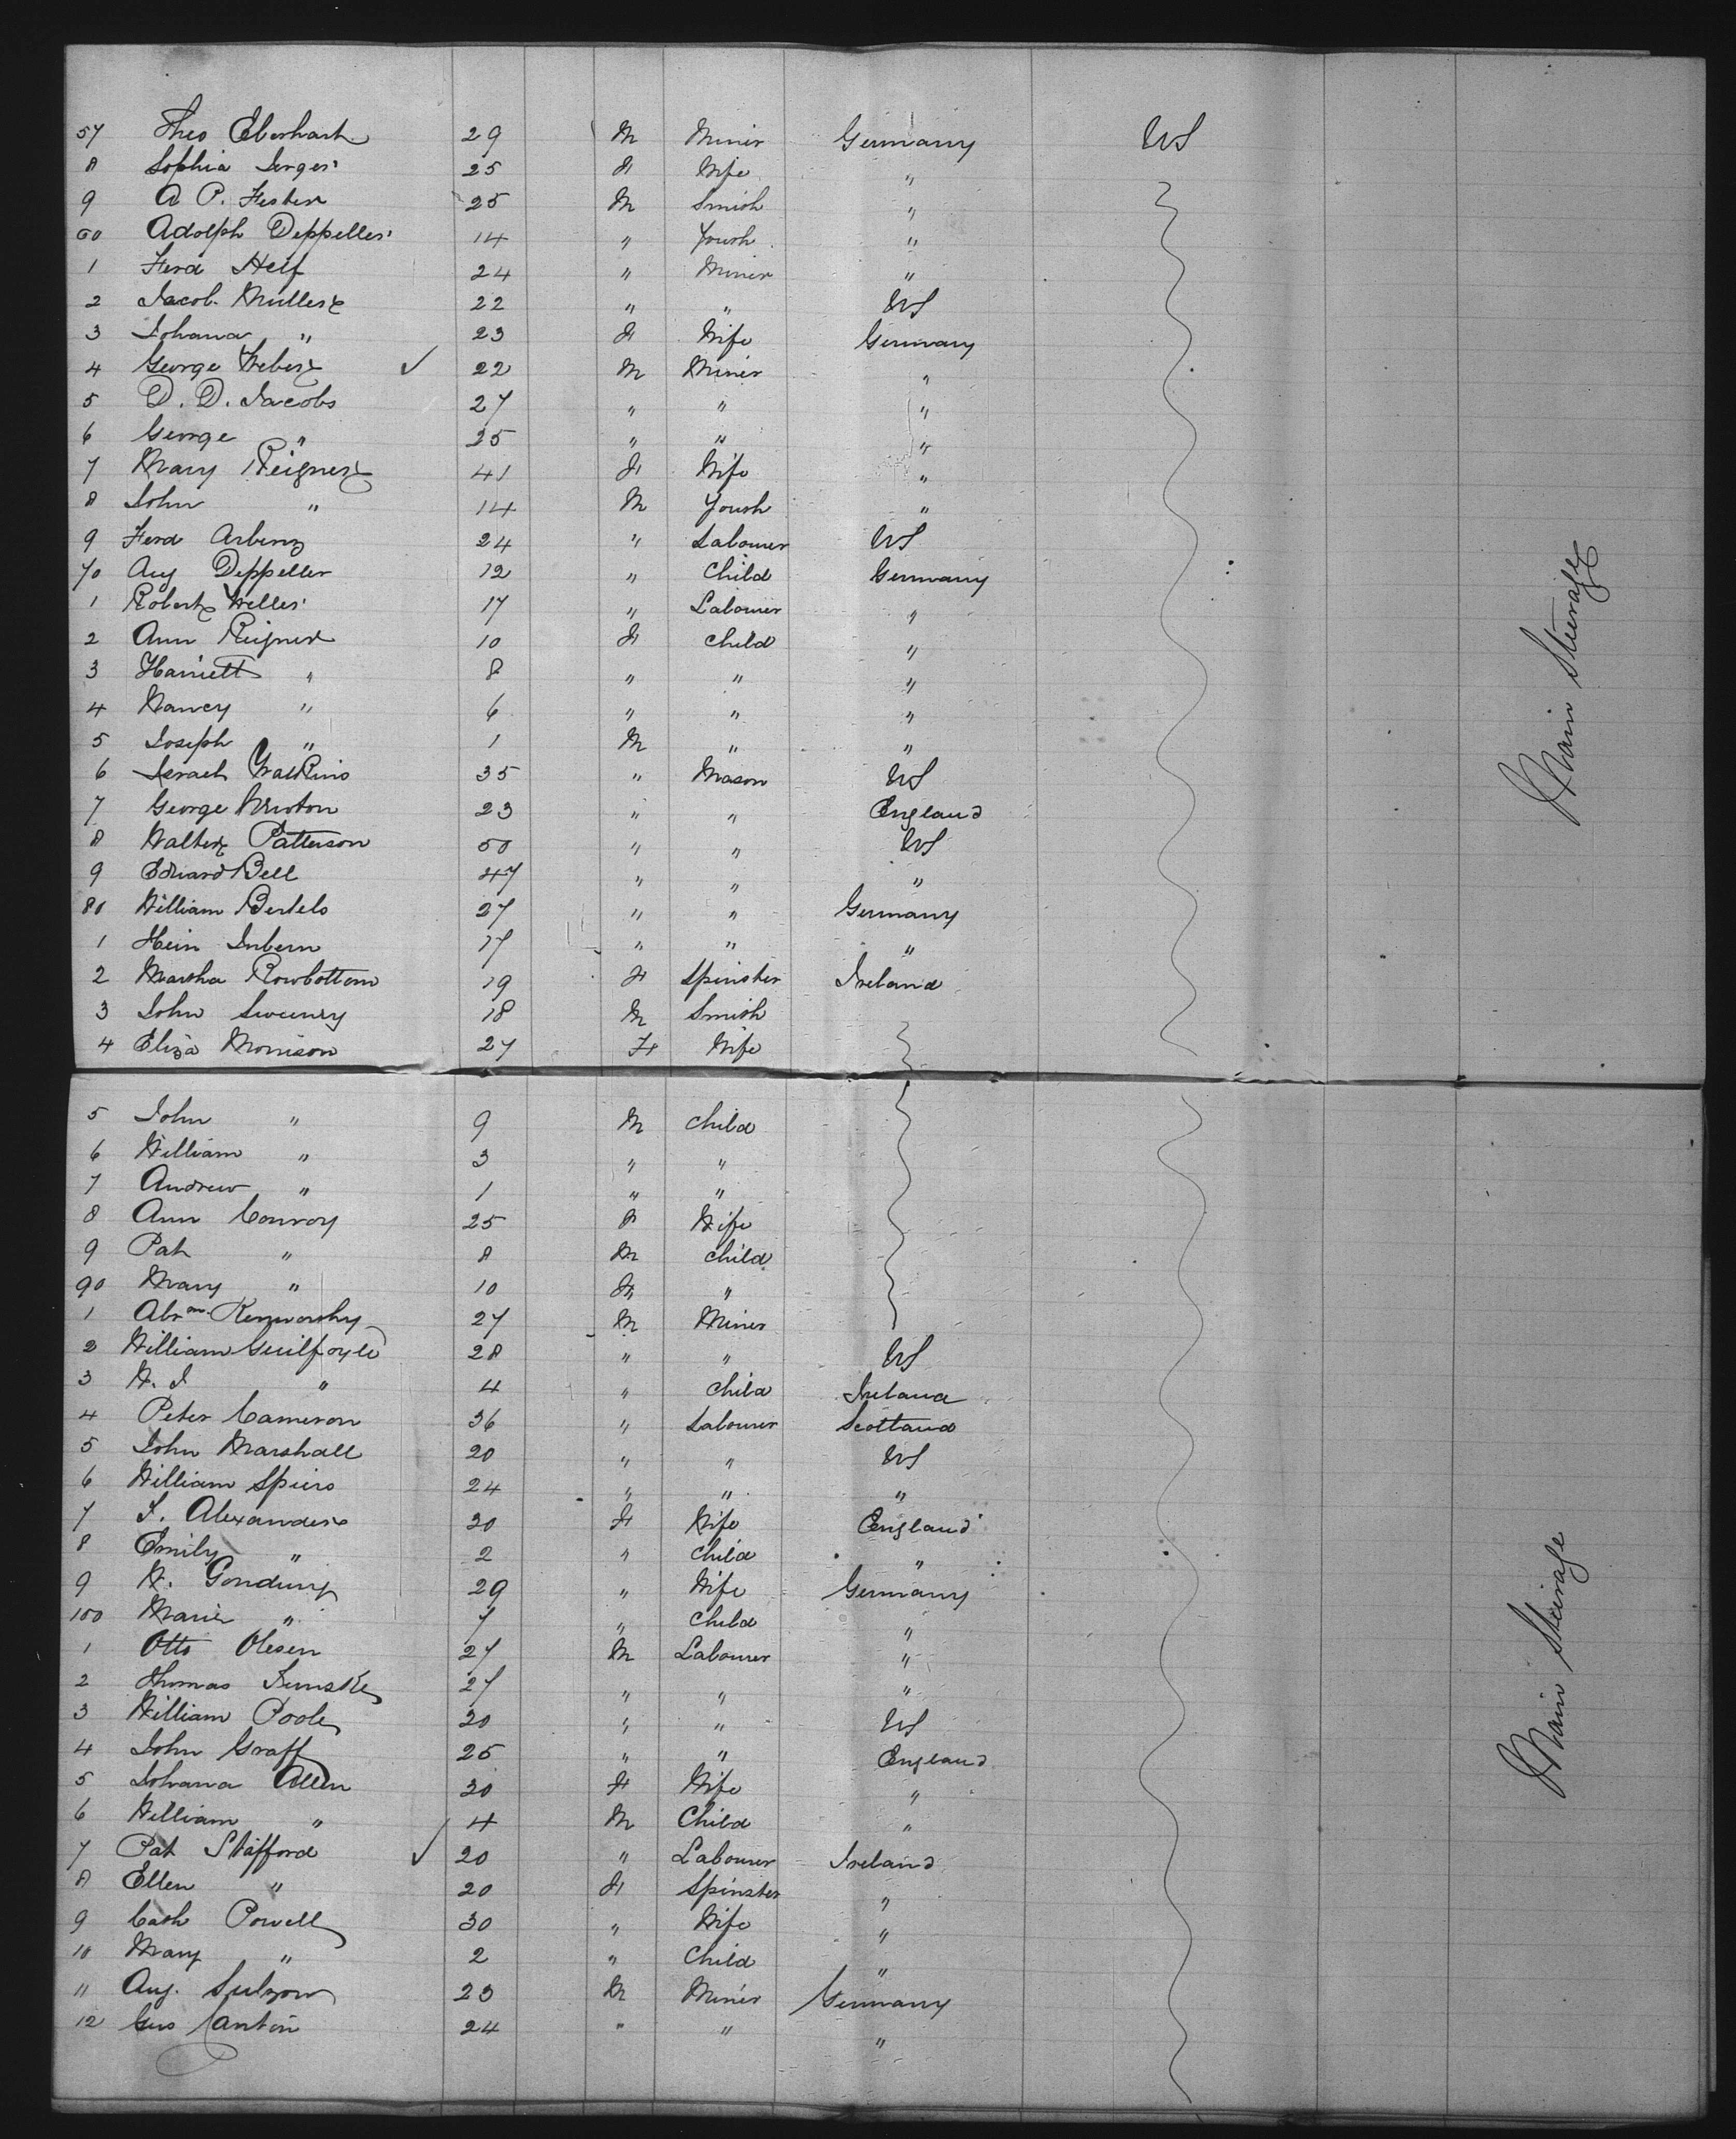 57 Theo Eberhart 29 M Miner Germany US
8 Sophia Serger 25 F Wife "
9 A P. Fester 25 M Smith "
60 Adolph Deppeller 14 " Youth "
1 Ferd Helf 24 " Miner "
2 Jacob Muller 22 " " US
3 Johana " 23 F Wife Germany
4 George Weber ✓ 22 M Miner "
5 D. D. Jacobs 27 " " "
6 George " 25 " " "
7 Mary Reigner 41 F Wife "
8 John " 14 M Youth "
9 Ferd Arbenz 24 " Labourer US
70 Aug Deppeller 12 " Child Germany
1 Robert Weller 17 " Labourer "
2 Ann Reigner 10 F Child "
3 Harriett " 8 " " "
4 Nancy " 6 " " "
5 Joseph " 1 M " "
6 Israel Watkins 35 " Mason US
7 George Newton 23 " " England
8 Walter Patterson 50 " " US
9 Edward Bell 47 " " "
80 William Bertels 27 " " Germany
1 Hein 17 " " "
2 Martha Rowbottom 19 F Spinster Ireland
3 John Sweeney 18 M Smith
4 Eliza Morrison 27 F Wife
Main Steerage
5 John " 9 M Child
6 William " 3 " "
7 Andrew " 1 " "
8 Ann Conroy 25 F Wife
9 Pat " 8 M Child
90 Mary " 10 F "
1 Abrm. Kenworthy 27 M Miner
2 William Guilfoyle 28 " " US
3 W. J " 4 " Child Ireland
4 Peter Cameron 36 " Labourer Scotland
5 John Marshall 20 " " US
6 William Spiers 24 " " "
7 J. Alexander 30 F Wife England
8 Emily " 2 " Child "
9 W. Gonduny 29 " Wife Germany
100 Marie " 7 " Child "
1 Otto Olesen 27 M Labourer "
2 Thomas 27 " " "
3 William Poole 20 " " US
4 John Graff 25 " " England
5 Johana Allen 30 F Wife "
6 William " 4 M Child "
7 Pat Stafford ✓ 20 " Labourer Ireland
8 Ellen " 20 F Spinster "
9 Cath Powell 30 " Wife "
10 Mary " 2 " Child "
11 Aug. Sulzow 23 M Miner Germany
12 Gus Canton 24 " " "
Main Steerage